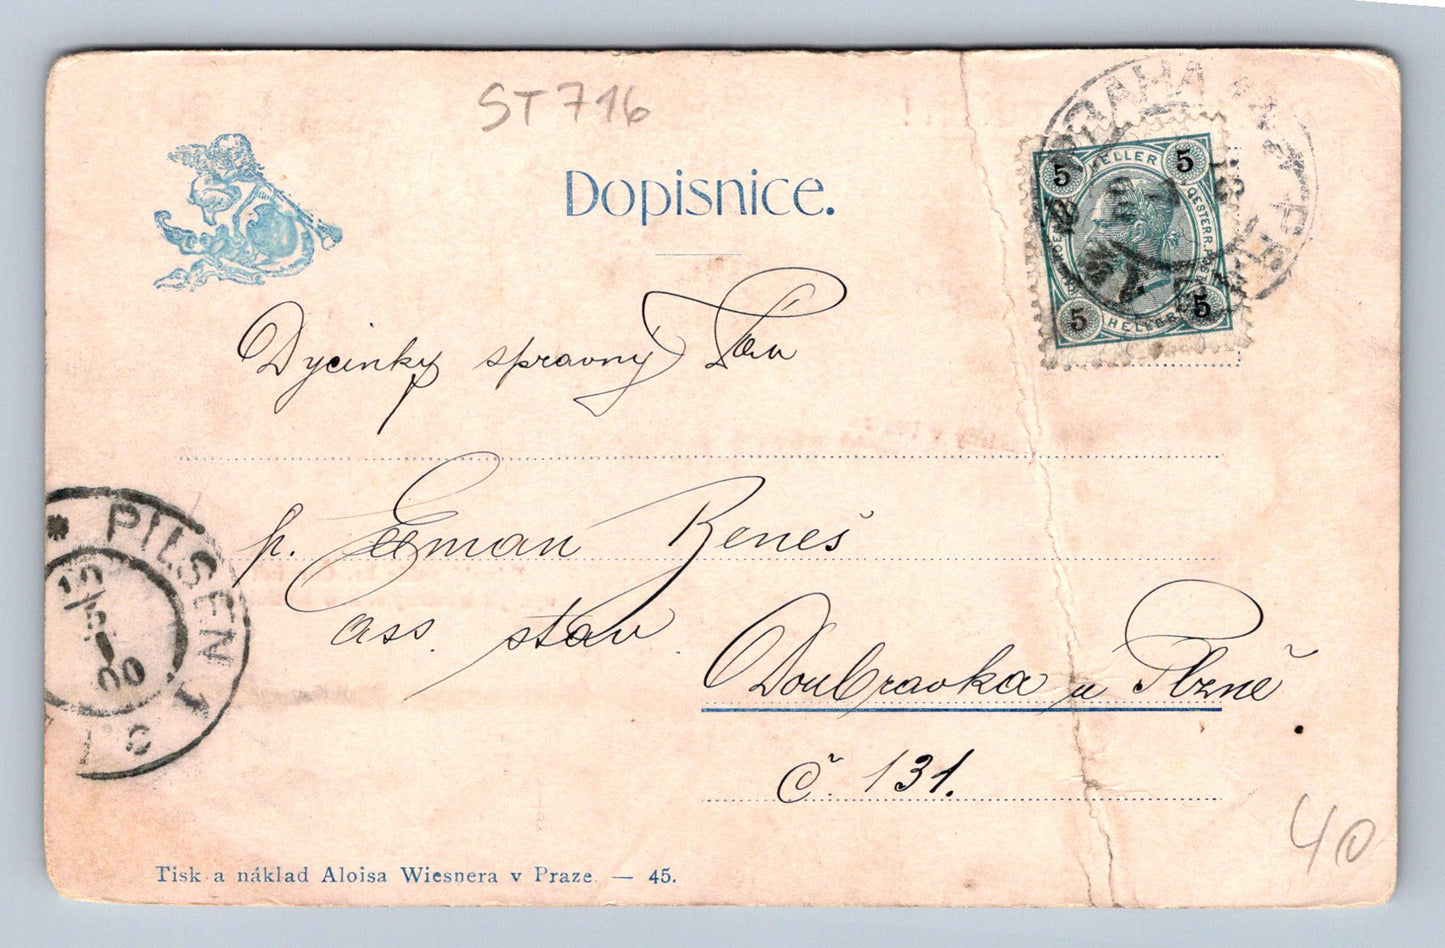 ST 716
Dopisnice.
PRAHA
5 HELLER 5
5 HELLER 5
spravný Pán
p. Eeman Beneš
ass. stav.
Doubravka u Plzně
č. 131.
* PILSEN 1
00
40
Tisk a náklad Aloisa Wiesnera v Praze. — 45.